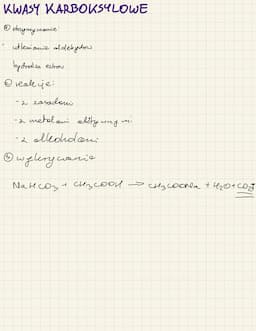 KWASY KARBOKSYLOWE
① otrzymywanie:
- utlenianie aldehydów
hydroliza estrów
② reakcje:
- z zasadami
- z metalami aktywnymi
- z alkoholami
③ wykrywanie
NaHCO₃ + CH₃COOH → CH₃COONa + H₂O + CO₂↑